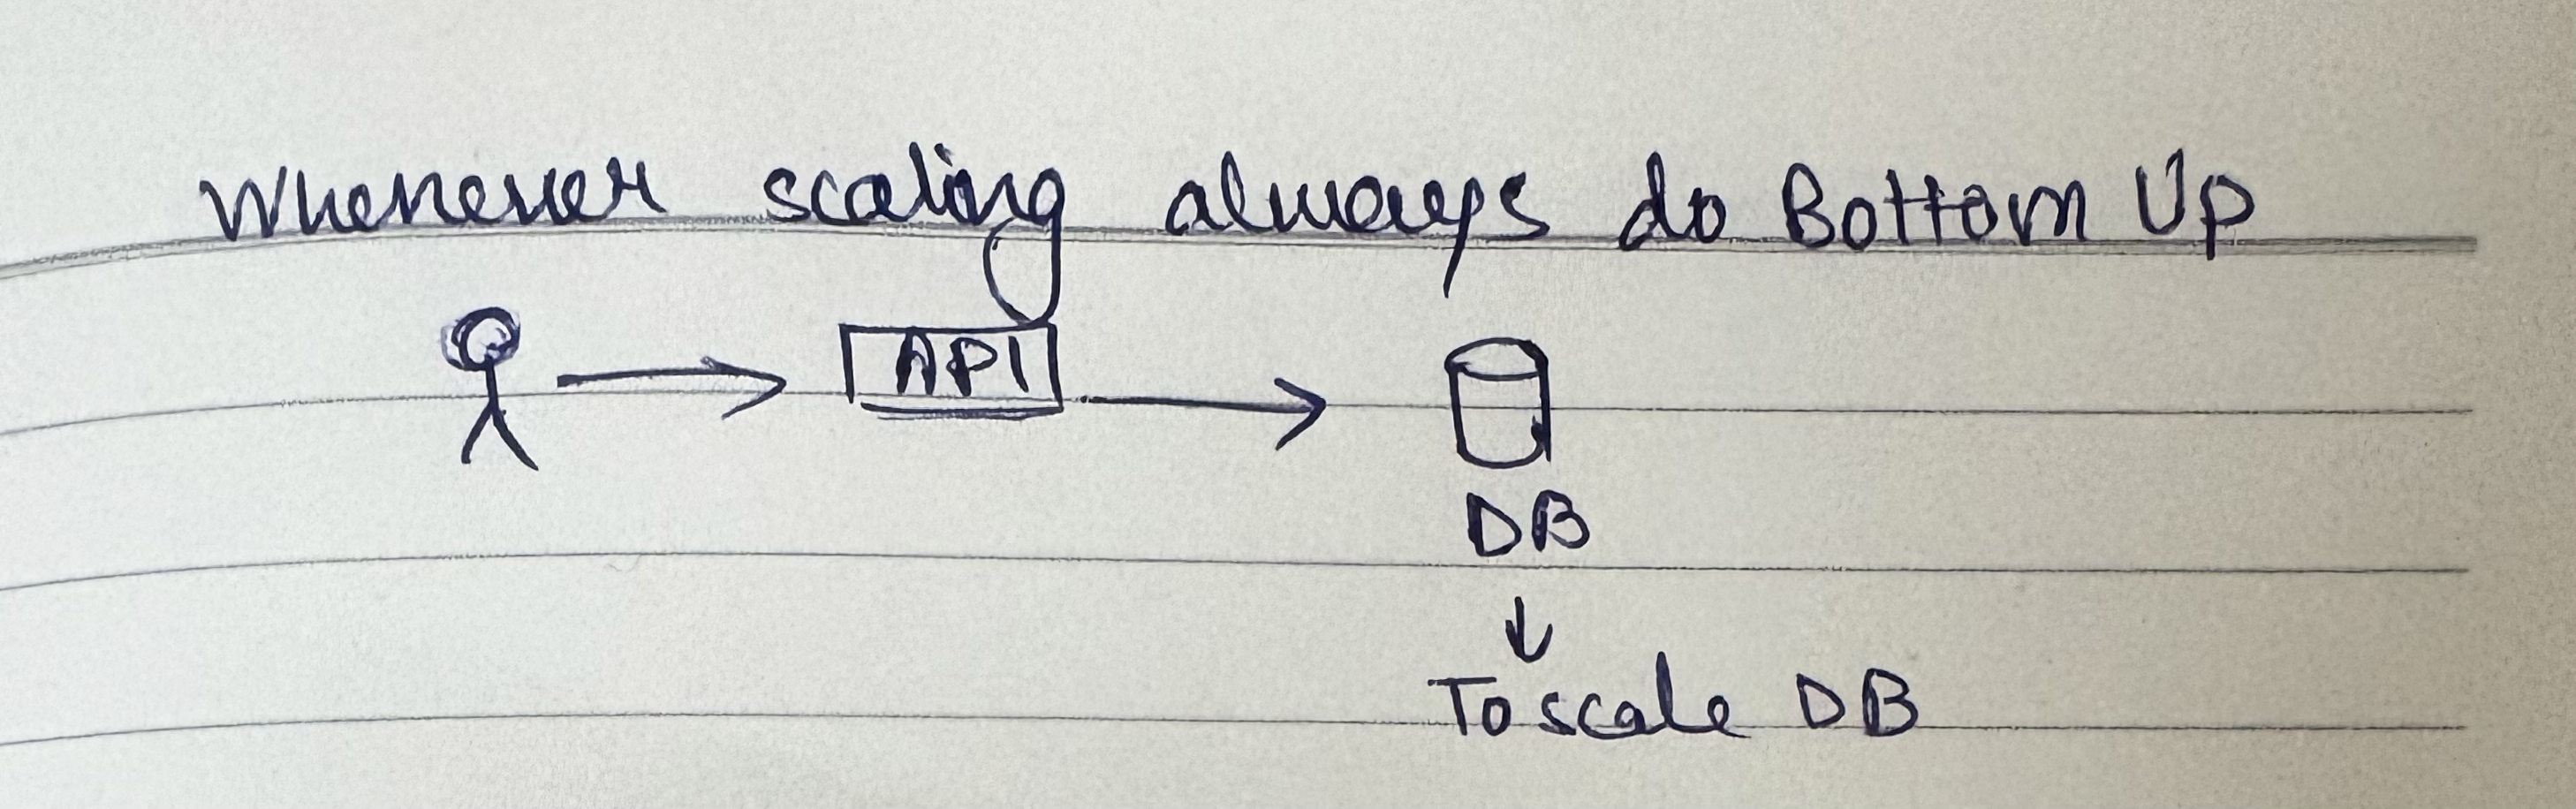 Whenever scaling always do Bottom Up
API
DB
To scale DB